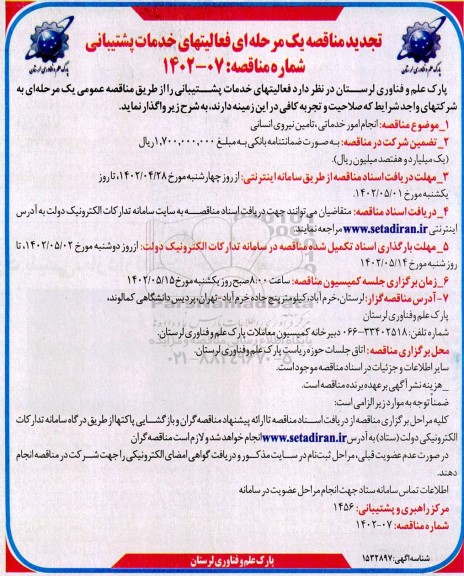 تجدید مناقصه یک مرحله ای فعالیتهای خدمات پشتیبانی
شماره مناقصه: ۰۷-۱۴۰۲
پارک علم و فناوری لرستان
پارک علم و فناوری لرستان
پارک علم و فناوری لرستان در نظر دارد فعالیتهای خدمات پشتیبانی را از طریق مناقصه عمومی یک مرحله‌ای به
شرکتهای واجد شرایط که صلاحیت و تجربه کافی در این زمینه دارند، به شرح زیر واگذار نماید.
۱_موضوع مناقصه: انجام امور خدماتی، تامین نیروی انسانی
۲_ تضمین شرکت در مناقصه: به صورت ضمانتنامه بانکی به مبلغ ۱,۷۰۰,۰۰۰,۰۰۰ ریال
(یک میلیارد و هفتصد میلیون ریال).
۳_مهلت دریافت اسناد مناقصه از طریق سامانه اینترنتی: از روز چهارشنبه مورخ ۱۴۰۲/۰۴/۲۸، تا روز
یکشنبه مورخ ۱۴۰۲/۰۵/۰۱.
۴_ دریافت اسناد مناقصه: متقاضیان می‌توانند جهت دریافت اسناد مناقصه به سایت سامانه تدارکات الکترونیک دولت به آدرس
اینترنتی www.setadiran.ir مراجعه نمایند.
۵_ مهلت بارگذاری اسناد تکمیل شده مناقصه در سامانه تدارکات الکترونیک دولت: از روز دوشنبه مورخ ۱۴۰۲/۰۵/۰۲، تا
روز شنبه مورخ ۱۴۰۲/۰۵/۱۴
۶_ زمان برگزاری جلسه کمیسیون مناقصه: ساعت ۸:۰۰ صبح روز یکشنبه مورخ ۱۴۰۲/۰۵/۱۵
۷- آدرس مناقصه گزار: لرستان، خرم آباد، کیلومتر پنج جاده خرم آباد-تهران، پردیس دانشگاهی کمالوند،
پارک علم و فناوری لرستان
شماره تلفن: ۳۳۴۰۲۵۱۸-۰۶۶ دبیرخانه کمیسیون معاملات پارک علم و فناوری لرستان.
محل برگزاری مناقصه: اتاق جلسات حوزه ریاست پارک علم و فناوری لرستان.
سایر اطلاعات و جزئیات در اسناد مناقصه موجود است.
_هزینه نشر آگهی بر عهده برنده مناقصه است.
ضمناً توجه به موارد زیر الزامی است:
کلیه مراحل برگزاری مناقصه از دریافت اسناد مناقصه تا ارائه پیشنهاد مناقصه گران و بازگشایی پاکتها از طریق درگاه سامانه تدارکات
الکترونیکی دولت (ستاد) به آدرس www.setadiran.ir انجام خواهد شد و لازم است مناقصه گران
در صورت عدم عضویت قبلی، مراحل ثبت‌نام در سایت مذکور و دریافت گواهی امضای الکترونیکی را جهت شرکت در مناقصه انجام
دهند.
اطلاعات تماس سامانه ستاد جهت انجام مراحل عضویت در سامانه
مرکز راهبری و پشتیبانی: ۱۴۵۶
شماره مناقصه: ۰۷-۱۴۰۲
شناسه آگهی: ۱۵۳۲۸۹۷
پارک علم و فناوری لرستان